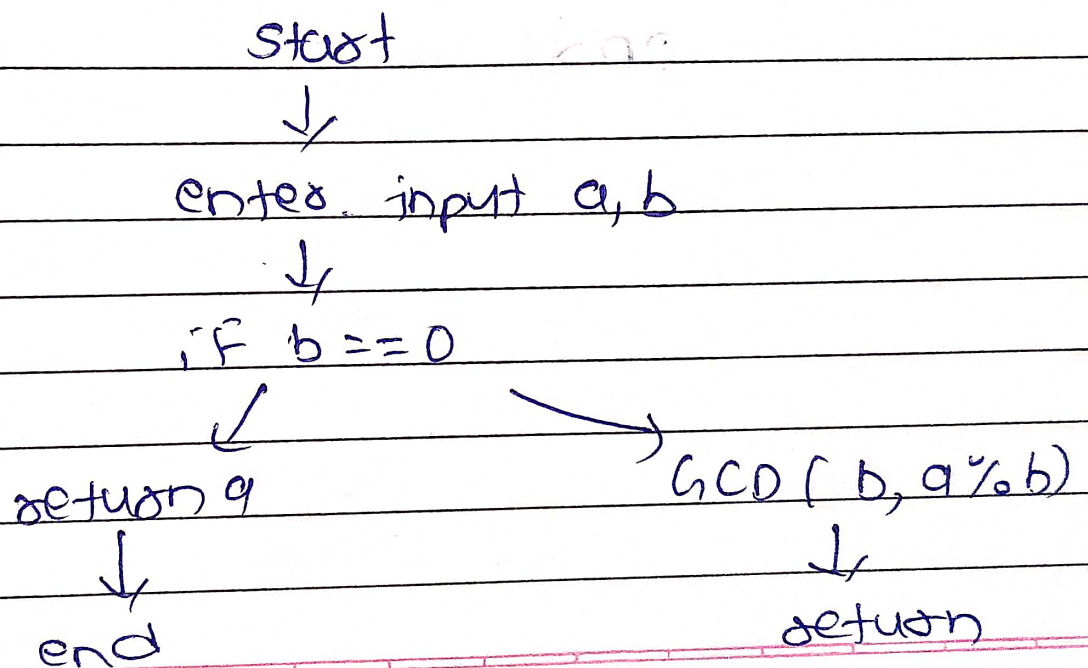 Start
↓
enter input a, b
↓
if b == 0
↙ ↘
return a GCD ( b, a%b)
↓ ↓
end return